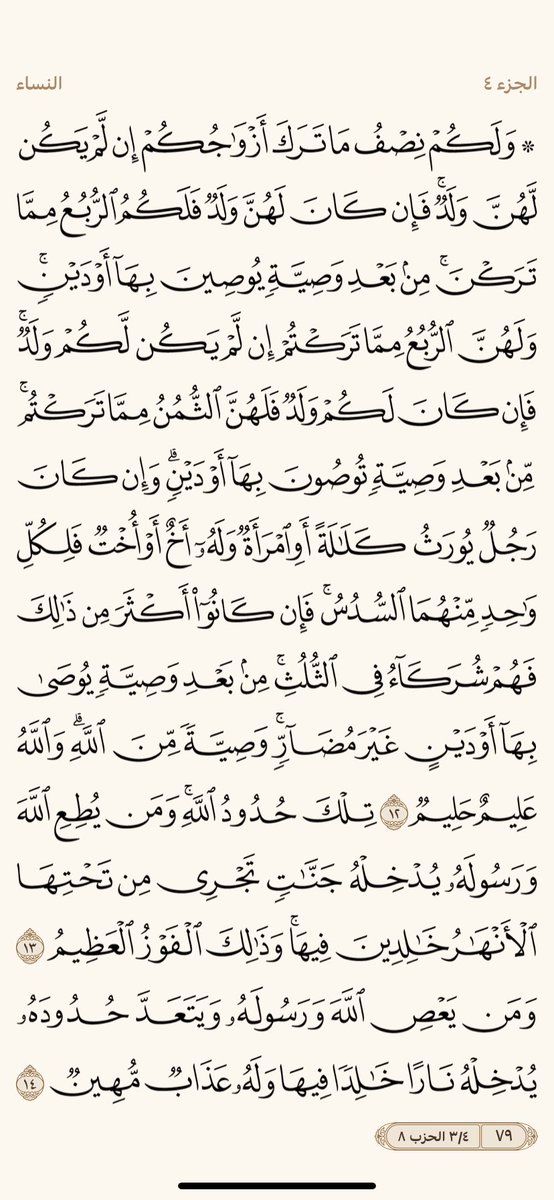 الجزء ٤
النساء
۞ وَلَكُمۡ نِصۡفُ مَا تَرَكَ أَزۡوَٰجُكُمۡ إِن لَّمۡ يَكُن
لَّهُنَّ وَلَدٞۚ فَإِن كَانَ لَهُنَّ وَلَدٞ فَلَكُمُ ٱلرُّبُعُ مِمَّا
تَرَكۡنَۚ مِنۢ بَعۡدِ وَصِيَّةٖ يُوصِينَ بِهَآ أَوۡ دَيۡنٖۚ
وَلَهُنَّ ٱلرُّبُعُ مِمَّا تَرَكۡتُمۡ إِن لَّمۡ يَكُن لَّكُمۡ وَلَدٞۚ
فَإِن كَانَ لَكُمۡ وَلَدٞ فَلَهُنَّ ٱلثُّمُنُ مِمَّا تَرَكۡتُمۚ
مِّنۢ بَعۡدِ وَصِيَّةٖ تُوصُونَ بِهَآ أَوۡ دَيۡنٖۗ وَإِن كَانَ
رَجُلٞ يُورَثُ كَلَٰلَةً أَوِ ٱمۡرَأَةٞ وَلَهُۥٓ أَخٌ أَوۡ أُخۡتٞ فَلِكُلِّ
وَٰحِدٖ مِّنۡهُمَا ٱلسُّدُسُۚ فَإِن كَانُوٓاْ أَكۡثَرَ مِن ذَٰلِكَ
فَهُمۡ شُرَكَآءُ فِي ٱلثُّلُثِۚ مِنۢ بَعۡدِ وَصِيَّةٖ يُوصَىٰ
بِهَآ أَوۡ دَيۡنٍ غَيۡرَ مُضَآرّٖۚ وَصِيَّةٗ مِّنَ ٱللَّهِۗ وَٱللَّهُ
عَلِيمٌ حَلِيمٞ ١٢ تِلۡكَ حُدُودُ ٱللَّهِۚ وَمَن يُطِعِ ٱللَّهَ
وَرَسُولَهُۥ يُدۡخِلۡهُ جَنَّٰتٖ تَجۡرِي مِن تَحۡتِهَا
ٱلۡأَنۡهَٰرُ خَٰلِدِينَ فِيهَاۚ وَذَٰلِكَ ٱلۡفَوۡزُ ٱلۡعَظِيمُ ١٣
وَمَن يَعۡصِ ٱللَّهَ وَرَسُولَهُۥ وَيَتَعَدَّ حُدُودَهُۥ
يُدۡخِلۡهُ نَارًا خَٰلِدٗا فِيهَا وَلَهُۥ عَذَابٞ مُّهِينٞ ١٤
٧٩
٣/٤ الحزب ٨